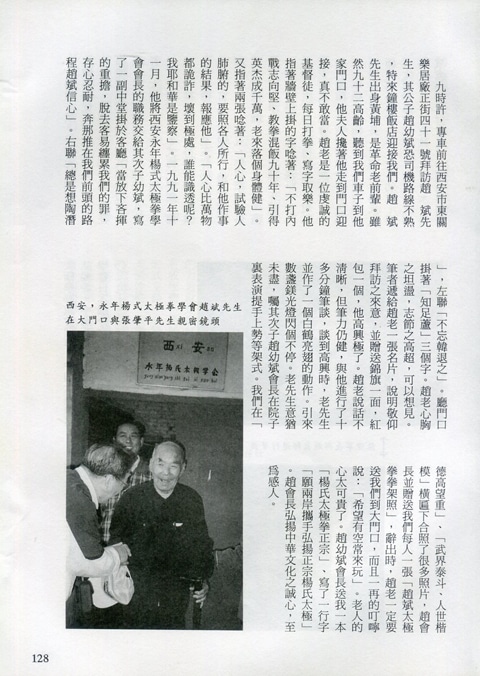 九時許，專車前往西安市東關
樂居廠正街四十一號拜訪趙　斌先
生，其公子趙幼斌恐司機路線不熟
，特來鐘樓飯店迎接我們。趙　斌
先生出身黃埔，是革命老前輩。雖
然九十三高齡，聽到我們車子到他
家門口，他夫人攙著他走到門口迎
接，真不敢當。趙老是一位虔誠的
基督徒，每日打拳、寫字取樂。他
指著牆壁上掛的字唸著：「不打內
戰志向堅、教拳混飯九十年、引得
英杰成千萬，老來落個身體健」。
又指著兩張唸著：「人心，試驗人
肺腑的，要照各人所行，和他作事
的結果，報應他」。「人心比萬物
都詭詐，壞到極處，誰能識透呢？
我耶和華是鑒察」。一九九一年十
一月，他將西安永年楊式太極拳學
會會長的職務交給其次子幼斌，寫
了一副中堂掛於客廳「當放下各揮
的重擔，脫去容易纏累我們的罪，
存心忍耐，奔那推在我們前頭的路
程趙斌信心」。右聯「總是想陶潛
」，左聯「不忘韓退之」。廳門口
掛著「知足蘆」三個字。趙老心胸
之坦盪，志節之高超，可以想見。
筆者遞給趙老一張名片，說明敬仰
拜訪之來意，並贈送錦旗一面，紅
包一個，他高興極了。趙老說話不
清晰，但筆力仍健，與他進行了十
多分鐘筆談，談到高興時，老先生
並作了一個白鶴亮翅的動作。引來
數盞鎂光燈閃個不停。老先生意猶
未盡，囑其次子趙幼斌會長在院子
裏表演提手上勢等架式。我們在「
德高望重」、「武界泰斗、人世楷
模」橫匾下合照了很多照片，趙會
長並贈送我們每人一張「趙斌太極
拳拳架照」，辭出時，趙老一定要
送我們到大門口，而且一再的叮嚀
說：「希望有空常來玩」。老人的
心太可貴了。趙幼斌會長送我一本
「楊氏太極拳正宗」、寫了一行字
「願兩岸攜手弘揚正宗楊氏太極」
。趙會長弘揚中華文化之誠心，至
爲感人。
西安，永年楊式太極拳學會趙斌先生
在大門口與張肇平先生親密鏡頭
西 XI 安 AN
永年楊氏太極學會
128